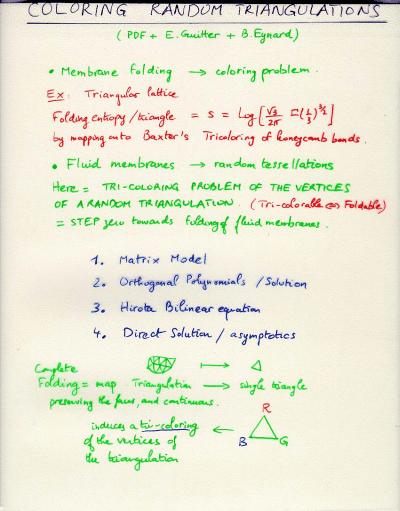 COLORING RANDOM TRIANGULATIONS
(PDF + E. Guitter + B. Eynard)
• Membrane folding → coloring problem.
Ex: Triangular lattice
Folding entropy/triangle = s = Log[√3/2π Γ(1/3)^3/2]
by mapping onto Baxter's Tricoloring of honeycomb bonds.
• Fluid membranes → random tessellations
Here = TRI-COLORING PROBLEM OF THE VERTICES
OF A RANDOM TRIANGULATION. (Tri-colorable ⇔ Foldable)
= STEP zero towards folding of fluid membranes.
1. Matrix Model
2. Orthogonal Polynomials / Solution
3. Hirota Bilinear equation
4. Direct Solution / asymptotics
Complete
Folding = map Triangulation → single triangle
preserving the faces, and continuous.
induces a tri-coloring ←
of the vertices of
the triangulation
R
B G